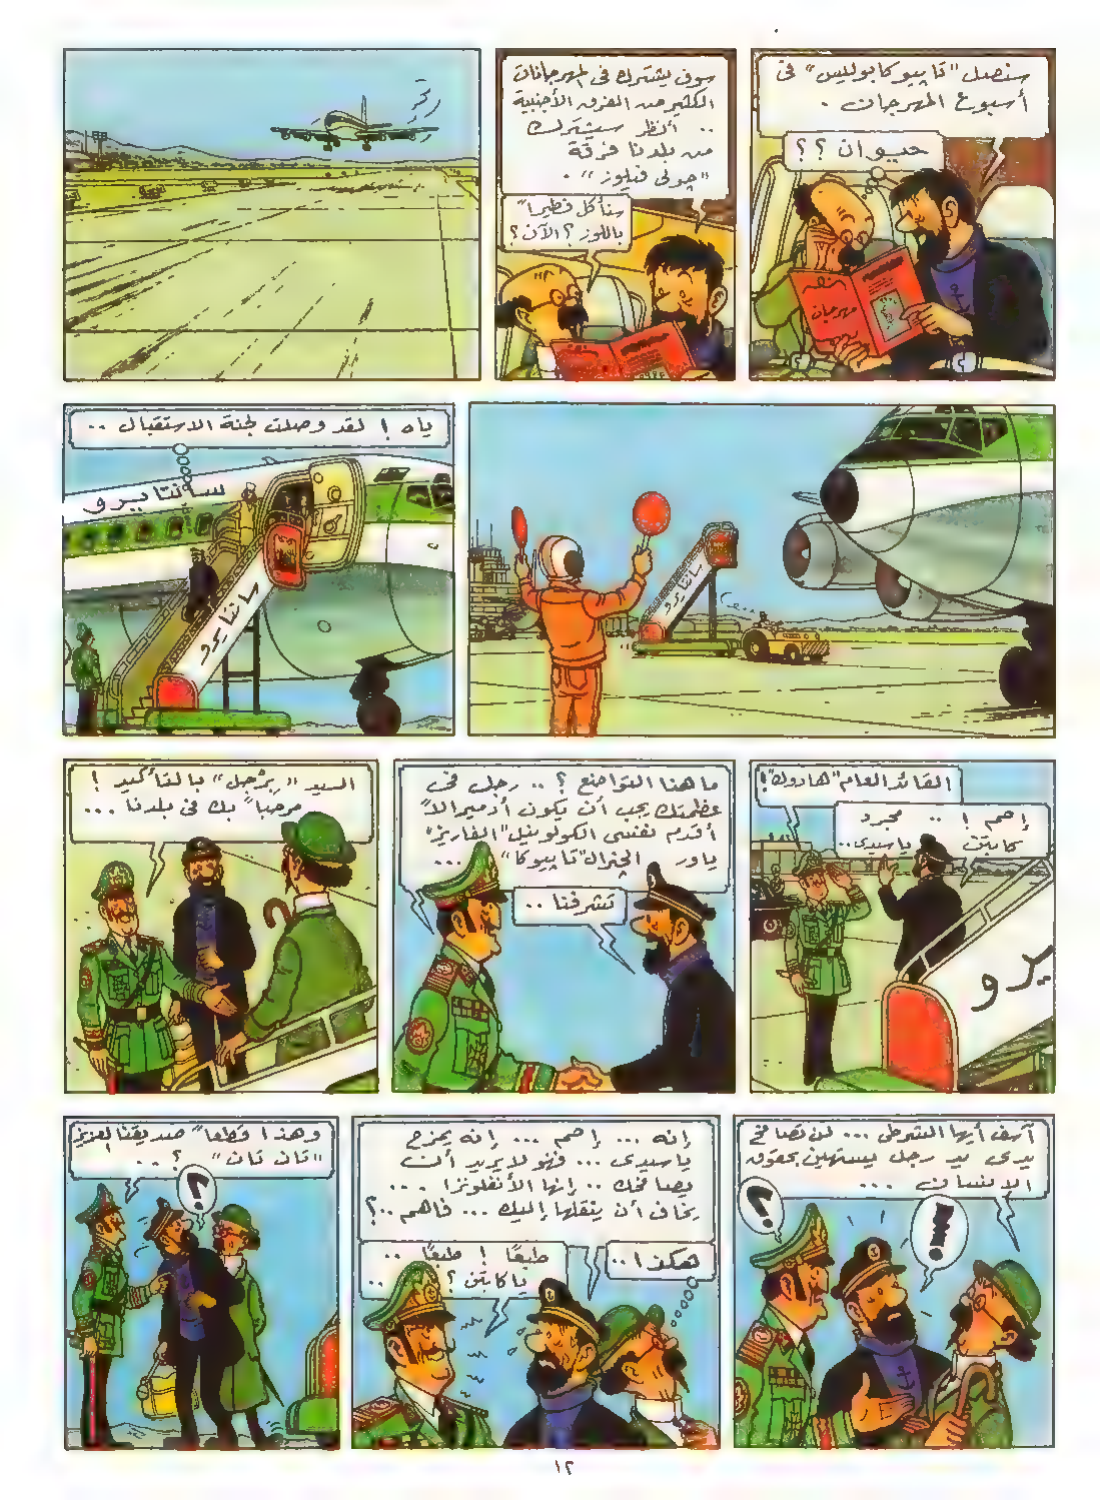 سنصل "تابيوكابوليس" في
أسبوع المهرجان .
حيوان ؟ ؟
مهرجان
سوف يشترك في المهرجانات
الكثير من الفرق الأجنبية
.. أنظر سيشترك
من بلدنا فرقة
"جولي فيلوز" .
سنأكل فطيراً
باللوز ؟ الآن ؟
سانتايرو
ياه ! لقد وصلت لجنة الاستقبال ..
سانتايرو
سانتايرو
القائد العام "هادوك" !
إحم ! .. مجرد
كابتن يا سيدي ..
يرو
ما هذا التواضع ؟ .. رجل في
عظمتك يجب أن يكون أدميرالاً
أقدم نفسي الكولونيل "الفاريز"
ياور الجنرال "تابيوكا" ...
تشرفنا ..
السيد "برجل" بالتأكيد !
مرحباً بك في بلدنا ...
آسف أيها الشرطي ... لن تصافح
يدي يد رجل يستهين بحقوق
الإنسان ...
؟
!
إنه ... إحم ... إنه يمزح
يا سيدي ... فهو لا يريد أن
يصافحك .. إنها الأنفلونزا ...
يخاف أن ينقلها إليك ... فاهم ..؟
هكذا ..
طبعًا ! طبعًا ..
يا كابتن ؟ ..
وهذا قطعاً صديقنا العزيز
"تان تان" ؟ ..
؟
١٢